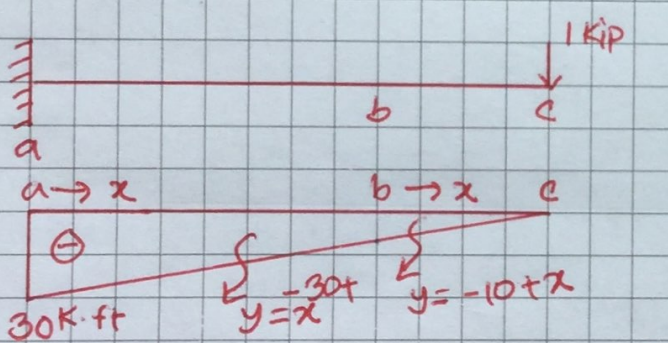 1 Kip
b c
a
a → x b → x c
⊖
30 K.ft y = -30 + x y = -10 + x